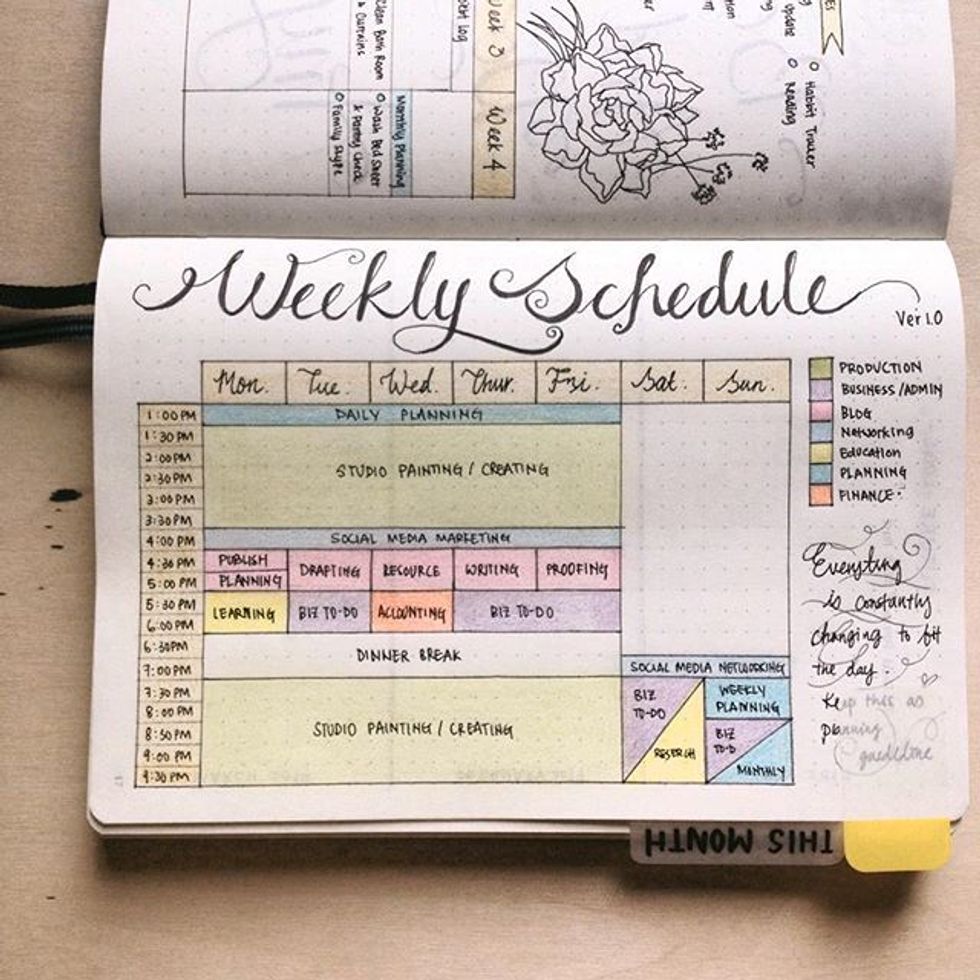 Week 3
Week 4
Clean Bath Room
& Curtains
Monthly Planning
Wash Bed Sheet
& Pantry Check
Family Skype
Update
Habbit Tracker
Reading
Weekly Schedule
Ver 1.0
Mon. Tue. Wed. Thur. Fri. Sat. Sun.
1:00 PM DAILY PLANNING
1:30 PM
2:00 PM STUDIO PAINTING / CREATING
2:30 PM
3:00 PM
3:30 PM
4:00 PM SOCIAL MEDIA MARKETING
4:30 PM PUBLISH DRAFTING RESOURCE WRITING PROOFING
5:00 PM PLANNING
5:30 PM LEARNING BIZ TO-DO ACCOUNTING BIZ TO-DO
6:00 PM
6:30 PM DINNER BREAK
7:00 PM SOCIAL MEDIA NETWORKING
7:30 PM BIZ WEEKLY
8:00 PM TO-DO PLANNING
8:30 PM STUDIO PAINTING / CREATING BIZ
9:00 PM RESERCH TO-D
9:30 PM MONTHLY
PRODUCTION
BUSINESS / ADMIN
BLOG
Networking
Education
PLANNING
FINANCE.
Everything
is constantly
changing to fit
the day.
Keep this as
planning
guideline
THIS MONTH